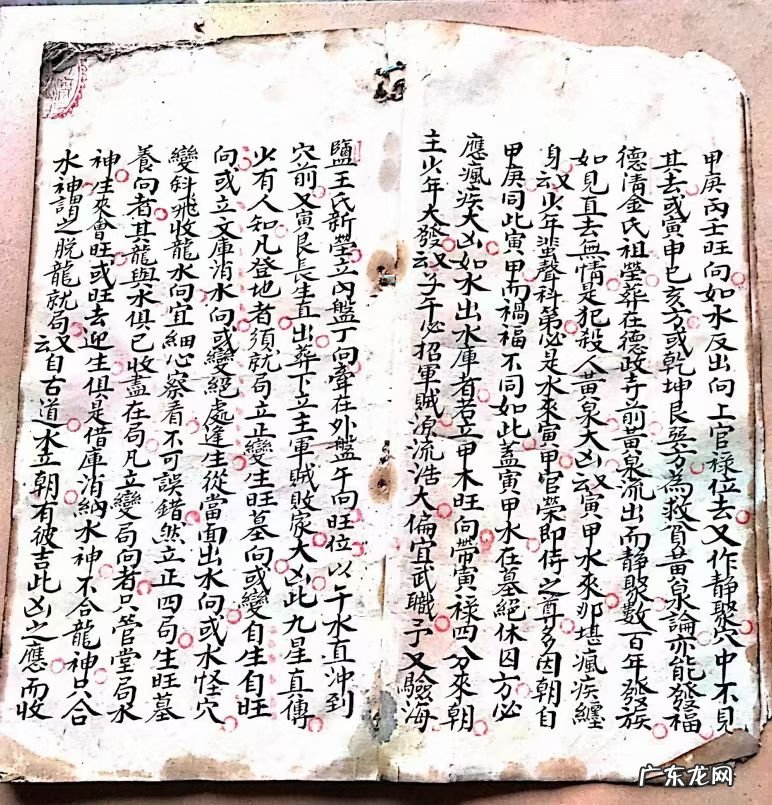 甲庚丙壬旺向如水反出向上官禄位去又作静聚穴中不見
其去或寅申巳亥方或乾坤艮巽方為救貧黃泉論亦能發福
德清金氏祖塋葬在德政寺前黃泉流出而静聚数百年發族
如見直去無情是犯殺人黃泉大凶又云寅甲水來那堪瘋疾纏
身又云少年蜚聲科第必是水來寅甲官榮即侍之尊多因朝自
甲庚同此寅甲而禍福不同如此蓋寅甲水在墓絕休囚方必
應瘋疾大凶如水出水庫者若立甲木旺向帶寅禄四分來朝
主少年大發又云子午必招軍賊源流浩大偏宜武職予又驗海
鹽王氏新塋立內盤丁向牽在外盤午向旺位以午水直沖到
穴前又寅艮長生直出葬下立主軍賊敗家大凶此九星真傳
少有人知凡登地者須就局立正變生旺墓向或變自生自旺
向或立文庫消水向或變絕處逢生從當面出水向或水怪穴
變斜飛收龍水向宜細心察看不可誤錯然立正四局生旺墓
養向者其龍與水俱已收盡在局凡立變局向者只管堂局水
神生來會旺或旺去迎生俱是借庫消納水神不合龍神只合
水神謂之脫龍就局又云自古道水立朝有彼吉此凶之應而收
广东龙网